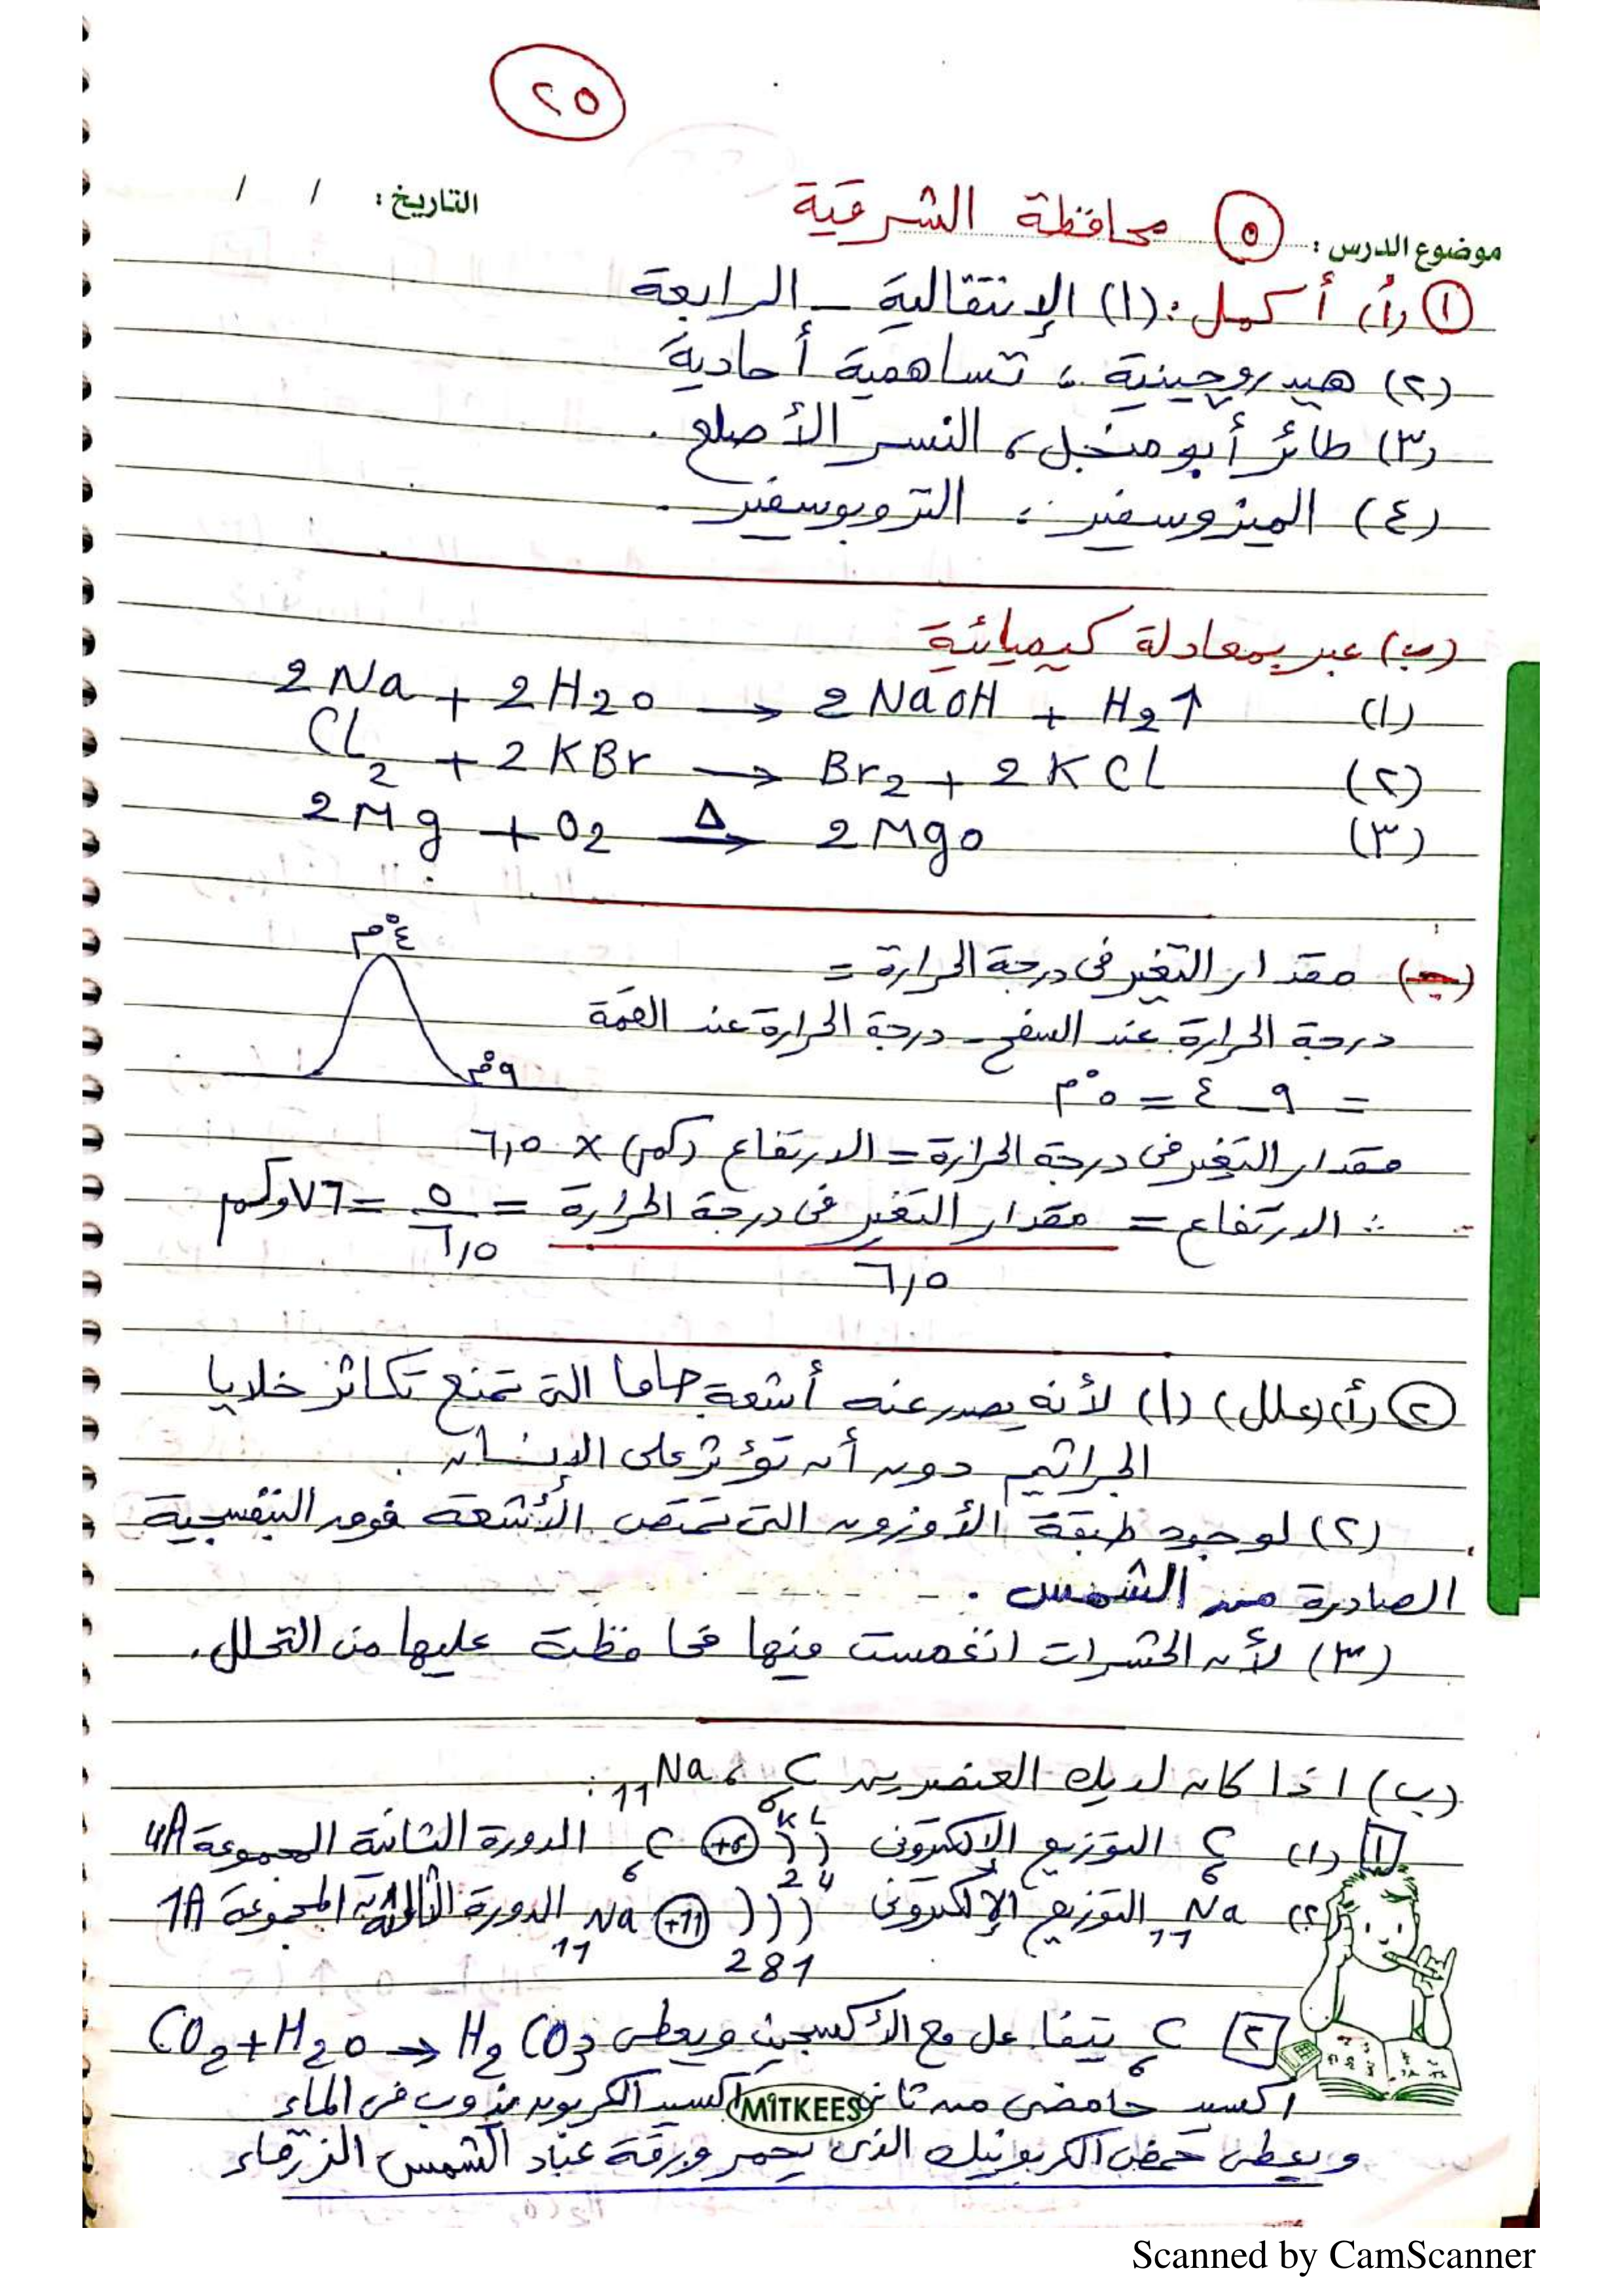 ٢٥
التاريخ: / /
موضوع الدرس: ٥ محافظة الشرقية
١ (أ) أكمل: (١) الإنتقالية - الرابعة
(٢) هيدروجينية ، تساهمية أحادية
(٣) طائر أبو منجل ، النسر الأصلع .
(٤) الميزوسفير ، التروبوسفير .
(ب) عبر بمعادلة كيميائية
(١) 2Na + 2H2O → 2NaOH + H2↑
(٢) Cl2 + 2KBr → Br2 + 2KCl
(٣) 2Mg + O2 →Δ 2MgO
٤°م
(جـ) مقدار التغير فى درجة الحرارة =
درجة الحرارة عند السفح - درجة الحرارة عند القمة
٩°م
= ٩ - ٤ = ٥°م
مقدار التغير فى درجة الحرارة = الارتفاع (كم) × ٦,٥
∴ الارتفاع = مقدار التغير فى درجة الحرارة / ٦,٥ = ٥ / ٦,٥ = ٧٦,و كم
٢ (أ) (علل) (١) لأنه يصدر عنه أشعة جاما التى تمنع تكاثر خلايا
الجراثيم دون أن تؤثر على الإنسان .
(٢) لوجود طبقة الأوزون التى تمتص الأشعة فوق البنفسجية
الصادرة من الشمس .
(٣) لأن الحشرات انغمست فيها فحافظت عليها من التحلل .
(ب) اذا كان لديك العنصرين 6C ، 11Na :
1 (١) 6C التوزيع الإلكترونى 6C +6 K L 2 4 الدورة الثانية المجموعة 4A
(٢) 11Na التوزيع الإلكترونى 11Na +11 2 8 1 الدورة الثالثة المجموعة 1A
٢ 6C يتفاعل مع الأكسجين ويعطى CO2 + H2O → H2CO3
اكسيد حامضى من ثانى اكسيد الكربون يذوب فى الماء
MITKEES
ويعطى حمض الكربونيك الذى يحمر ورقة عباد الشمس الزرقاء
Scanned by CamScanner